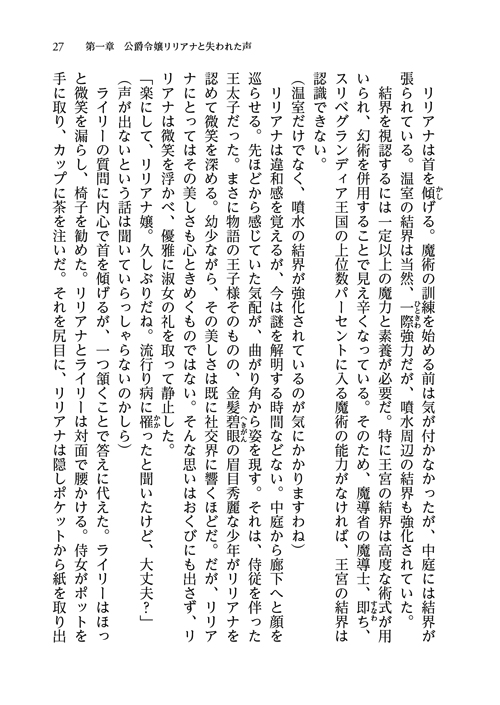 27　第一章　公爵令嬢リリアナと失われた声
　リリアナは首を傾げる。魔術の訓練を始める前は気が付かなかったが、中庭には結界が
張られている。温室の結界は当然、一際強力だが、噴水周辺の結界も強化されていた。
　結界を視認するには一定以上の魔力と素養が必要だ。特に王宮の結界は高度な術式が用
いられ、幻術を併用することで見え辛くなっている。そのため、魔導省の魔導士、即ち、
スリベグランディア王国の上位数パーセントに入る魔術の能力がなければ、王宮の結界は
認識できない。
（温室だけでなく、噴水の結界が強化されているのが気にかかりますわね）
　リリアナは違和感を覚えるが、今は謎を解明する時間などない。中庭から廊下へと顔を
巡らせる。先ほどから感じていた気配が、曲がり角から姿を現す。それは、侍従を伴った
王太子だった。まさに物語の王子様そのものの、金髪碧眼の眉目秀麗な少年がリリアナを
認めて微笑を深める。幼少ながら、その美しさは既に社交界に響くほどだ。だが、リリア
ナにとってはその美しさも心ときめくものではない。そんな思いはおくびにも出さず、リ
リアナは微笑を浮かべ、優雅に淑女の礼を取って静止した。
「楽にして、リリアナ嬢。久しぶりだね。流行り病に罹ったと聞いたけど、大丈夫？」
（声が出ないという話は聞いていらっしゃらないのかしら）
　ライリーの質問に内心で首を傾げるが、一つ頷くことで答えに代えた。ライリーはほっ
と微笑を漏らし、椅子を勧めた。リリアナとライリーは対面で腰かける。侍女がポットを
手に取り、カップに茶を注いだ。それを尻目に、リリアナは隠しポケットから紙を取り出